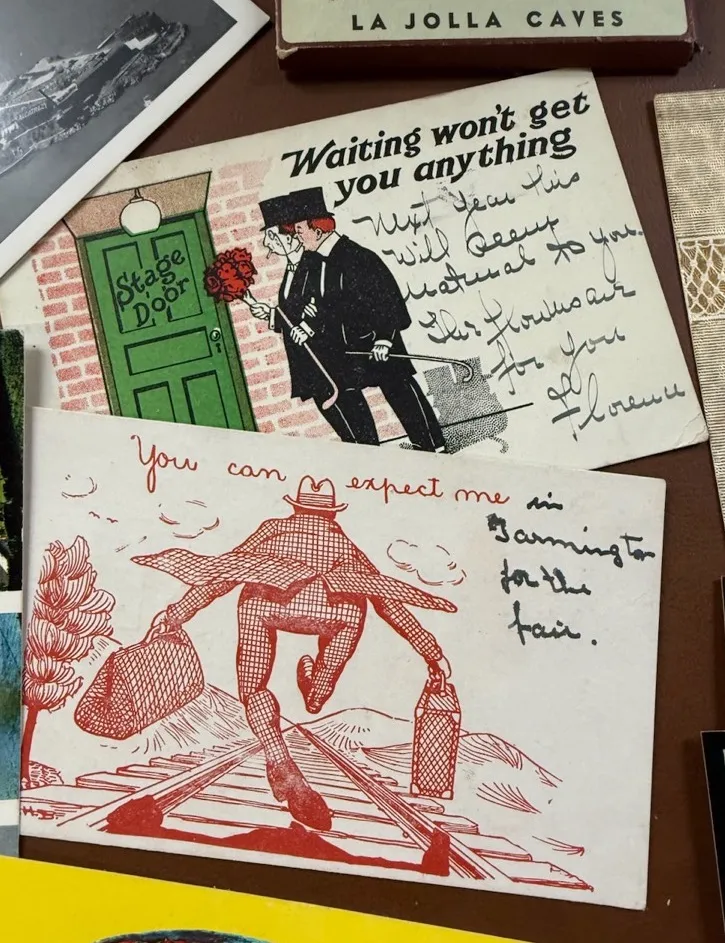 LA JOLLA CAVES
Waiting won't get
you anything
Next Year this
will seem
natural to you.
The flowers are
for you
Florence
Stage
Door
You can expect me in
Farmington
for the
fair.
H.B.